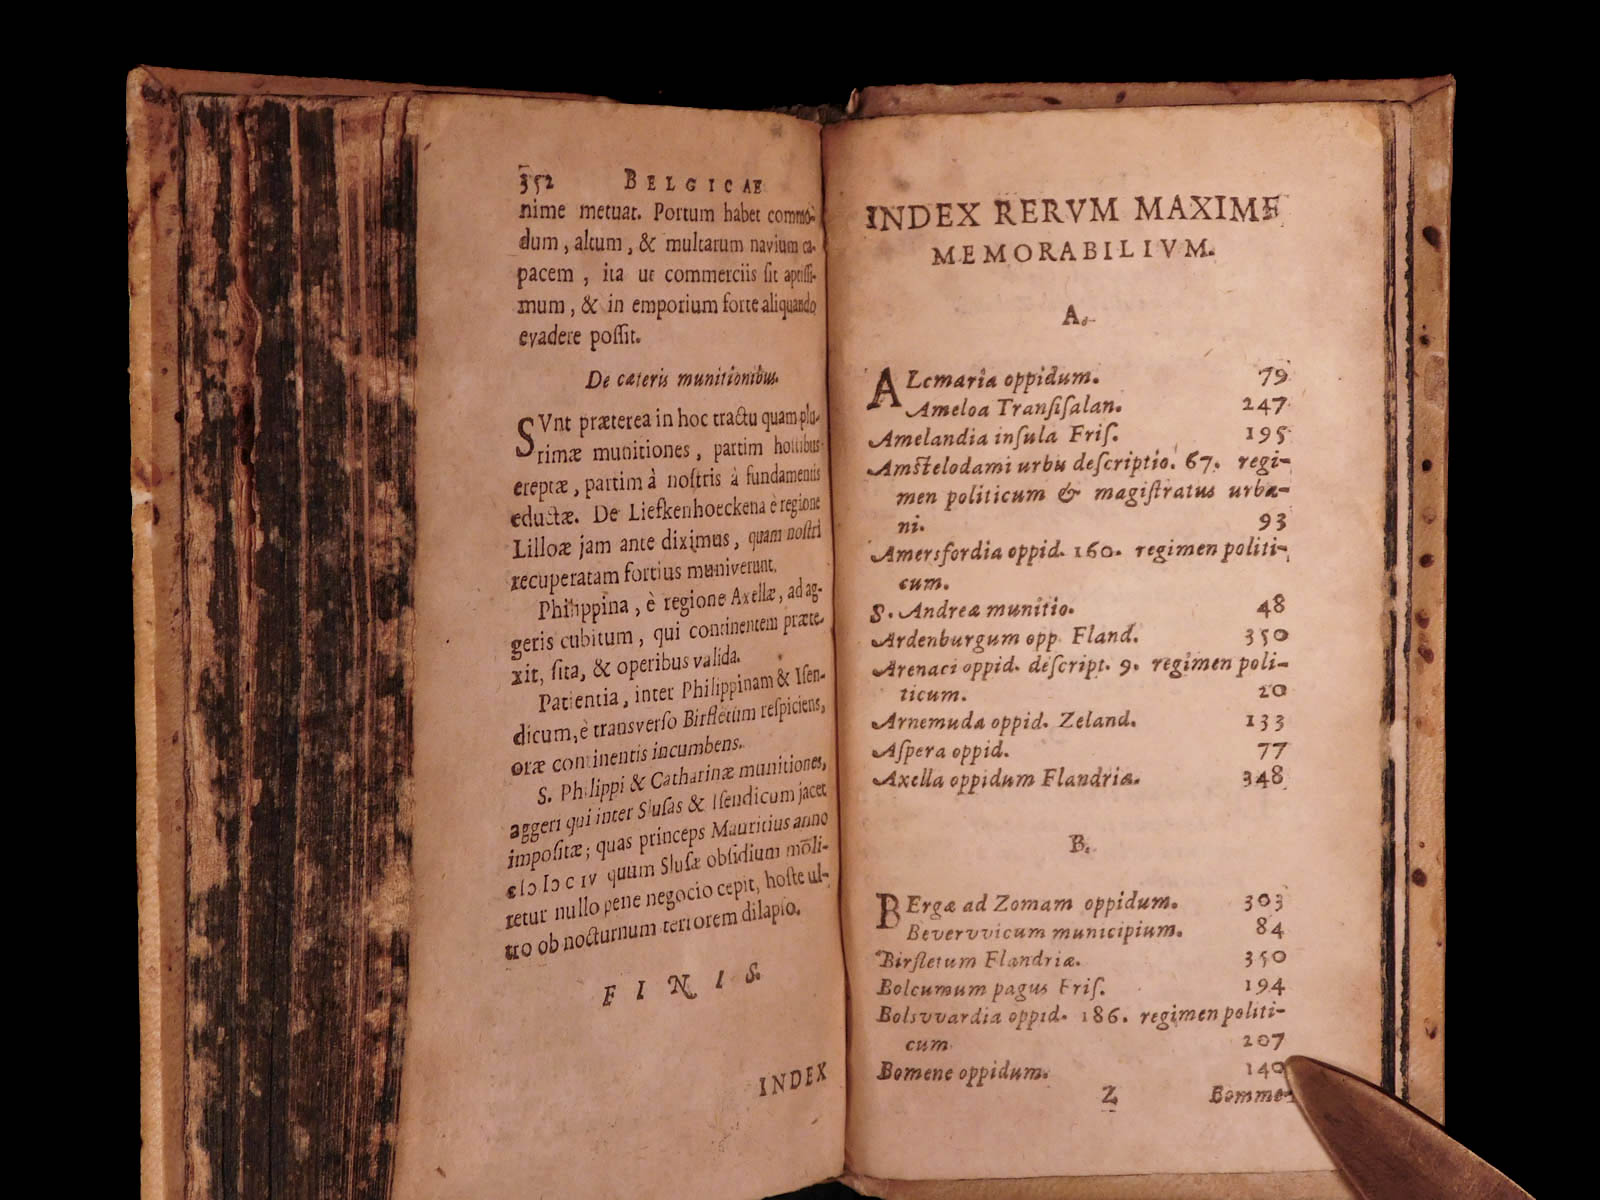 352 BELGICAE
nime metuat. Portum habet commo-
dum, altum, & multarum navium ca-
pacem, ita ut commerciis ſit aptiſſi-
mum, & in emporium forte aliquando
evadere poſſit.
De cæteris munitionibus.
SVnt præterea in hoc tractu quam plu-
rimæ munitiones, partim hoſtibus
ereptæ, partim à noſtris à fundamentis
eductæ. De Liefkenhoeckena è regione
Lilloæ jam ante diximus, quam noſtri
recuperatam fortius muniverunt.
Philippina, è regione Axellæ, ad ag-
geris cubitum, qui continentem præte-
xit, ſita, & operibus valida.
Patientia, inter Philippinam & Iſen-
dicum, è transverſo Birfletum reſpiciens,
oræ continentis incumbens.
S. Philippi & Catharinæ munitiones,
aggeri qui inter Sluſas & Iſendicum jacet
impoſitæ; quas princeps Mauritius anno
cIↄ Iↄ c IV quum Sluſæ obſidium mōli-
retur nullo pene negocio cepit, hoſte ul-
tro ob nocturnum terrorem dilapſo.
FINIS.
INDEX
INDEX RERVM MAXIME
MEMORABILIVM.
A.
ALcmaria oppidum. 79
Ameloa Tranſiſalan. 247
Amelandia inſula Friſ. 195
Amſtelodami urbis deſcriptio. 67. regi-
men politicum & magiſtratus urba-
ni. 93
Amersfordia oppid. 160. regimen politi-
cum.
S. Andreæ munitio. 48
Ardenburgum opp. Fland. 350
Arenaci oppid. deſcript. 9. regimen poli-
ticum. 20
Arnemuda oppid. Zeland. 133
Aſpera oppid. 77
Axella oppidum Flandriæ. 348
B.
BErgæ ad Zomam oppidum. 303
Bevervvicum municipium. 84
Birfletum Flandriæ. 350
Bolcumum pagus Friſ. 194
Bolsvvardia oppid. 186. regimen politi-
cum 207
Bomene oppidum. 140
Z Bomme-